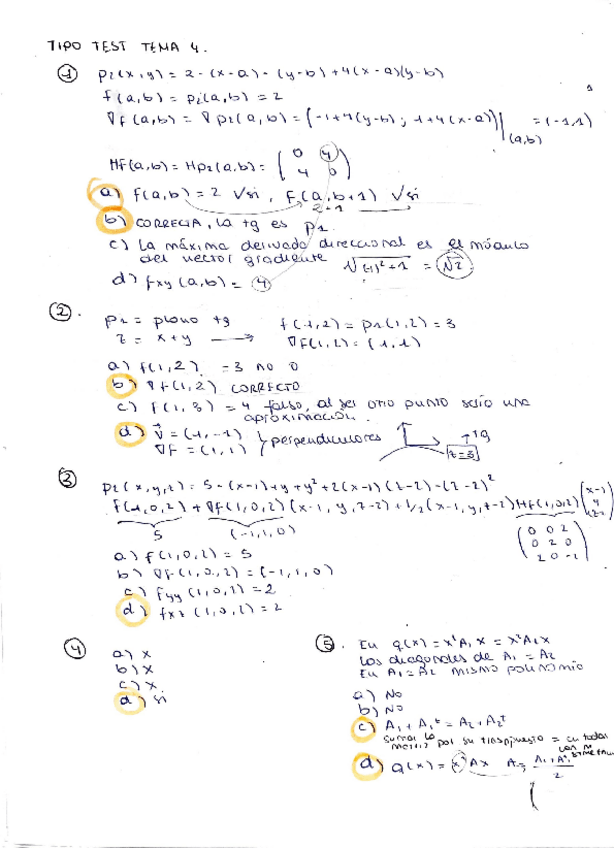 TIPO TEST TEMA 4.
① P₂(x,y) = 2-(x-a)-(y-b)+4(x-a)(y-b)
f(a,b) = p₂(a,b) = 2
∇f(a,b) = ∇p₂(a,b) = (-1+4(y-b); 1+4(x-a))|(a,b) = (-1,1)
Hf(a,b) = Hp₂(a,b) = ( 0 4
4 0 )
a) f(a,b) = 2 √si, F(a,b+1) √si
2-1
b) CORRECTA, la tg es P1.
c) La máxima derivada direccional es el módulo
del vector gradiente √(-1)²+1 = √2
d) fxy(a,b) = 4
②. P1 = plano tg f(1,2) = p1(1,2) = 3
z = x+y → ∇f(1,2) = (1,1)
a) f(1,2) = 3 no 0
b) ∇f(1,2) CORRECTO
c) f(1,3) = 4 falso, al ser otro punto sería una
aproximación.
d) v⃗ = (1,-1) } perpendiculares ↑tg
∇F = (1,1) z=3
③ P₂(x,y,z) = 5-(x-1)+y+y²+2(x-1)(z-2)-(z-2)²
f(1,0,2)+∇f(1,0,2)(x-1,y,z-2)+1/2(x-1,y,z-2)Hf(1,0,2)(x-1
y
z-2)
5 (-1,1,0) ( 0 0 2
0 2 0
2 0 -2 )
a) f(1,0,2) = 5
b) ∇f(1,0,2) = (-1,1,0)
c) fyy(1,0,2) = 2
d) fxz(1,0,2) = 2
④ a) x
b) x
c) x
d) si
⑤. En q(x) = xᵗA₁x = xᵗA₂x
Las diagonales de A₁ = A₂
En A₁ = A₂ mismo polinomio
a) No
b) No
c) A₁+A₁ᵗ = A₂+A₂ᵗ
sumar la matriz por su traspuesta = en todas
las
d) q(x) = xᵗAx A = A₁+A₁ᵗ
2